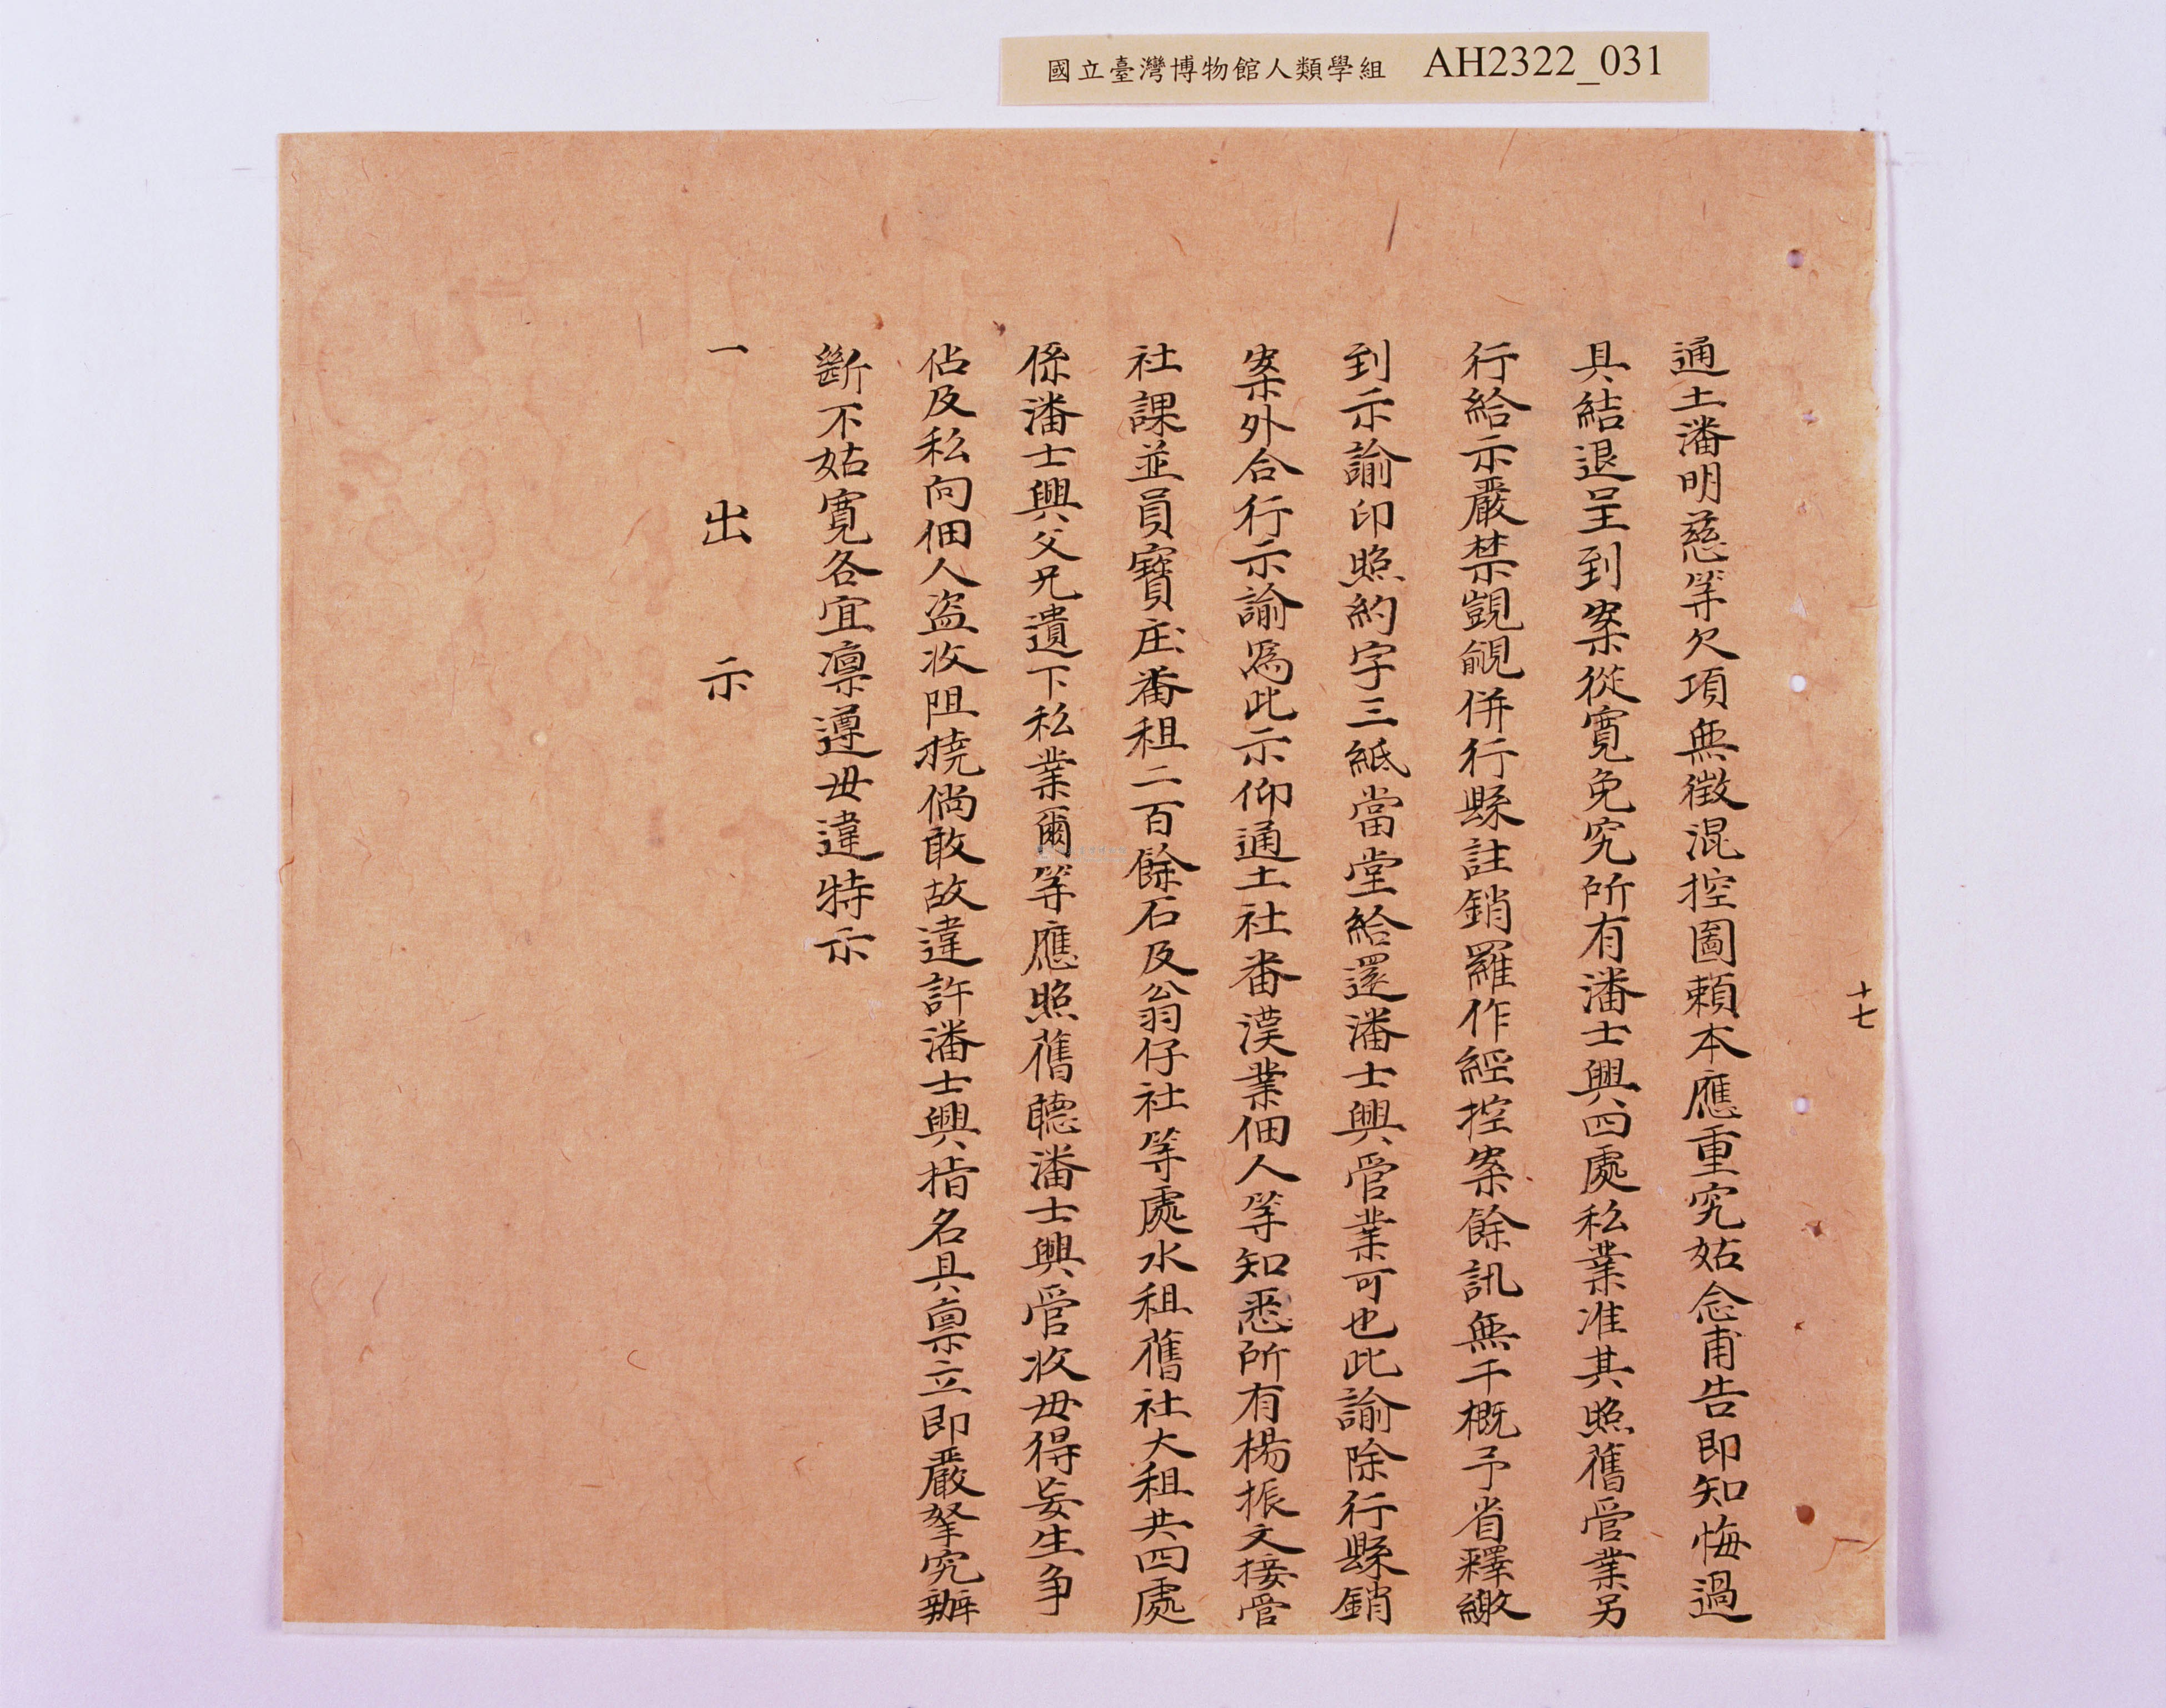 國立臺灣博物館人類學組 AH2322_031
十七
通土潘明慈等欠項無徵混控圖賴本應重究姑念甫告即知悔過
具結退呈到案從寬免究所有潘士興四處私業准其照舊管業另
行給示嚴禁覬覦併行縣註銷羅作經控案餘訊無干概予省釋繳
到示諭印照約字三紙當堂給還潘士興管業可也此諭除行縣銷
案外合行示諭為此示仰通土社番漢業佃人等知悉所有楊振文接管
社課並員寶庄番租二百餘石及翁仔社等處水租舊社大租共四處
係潘士興父兄遺下私業爾等應照舊聽潘士興管收毋得妄生爭
佔及私向佃人盜收阻撓倘敢故違許潘士興指名具稟立即嚴拏究辦
斷不姑寬各宜凜遵毋違特示
一出示